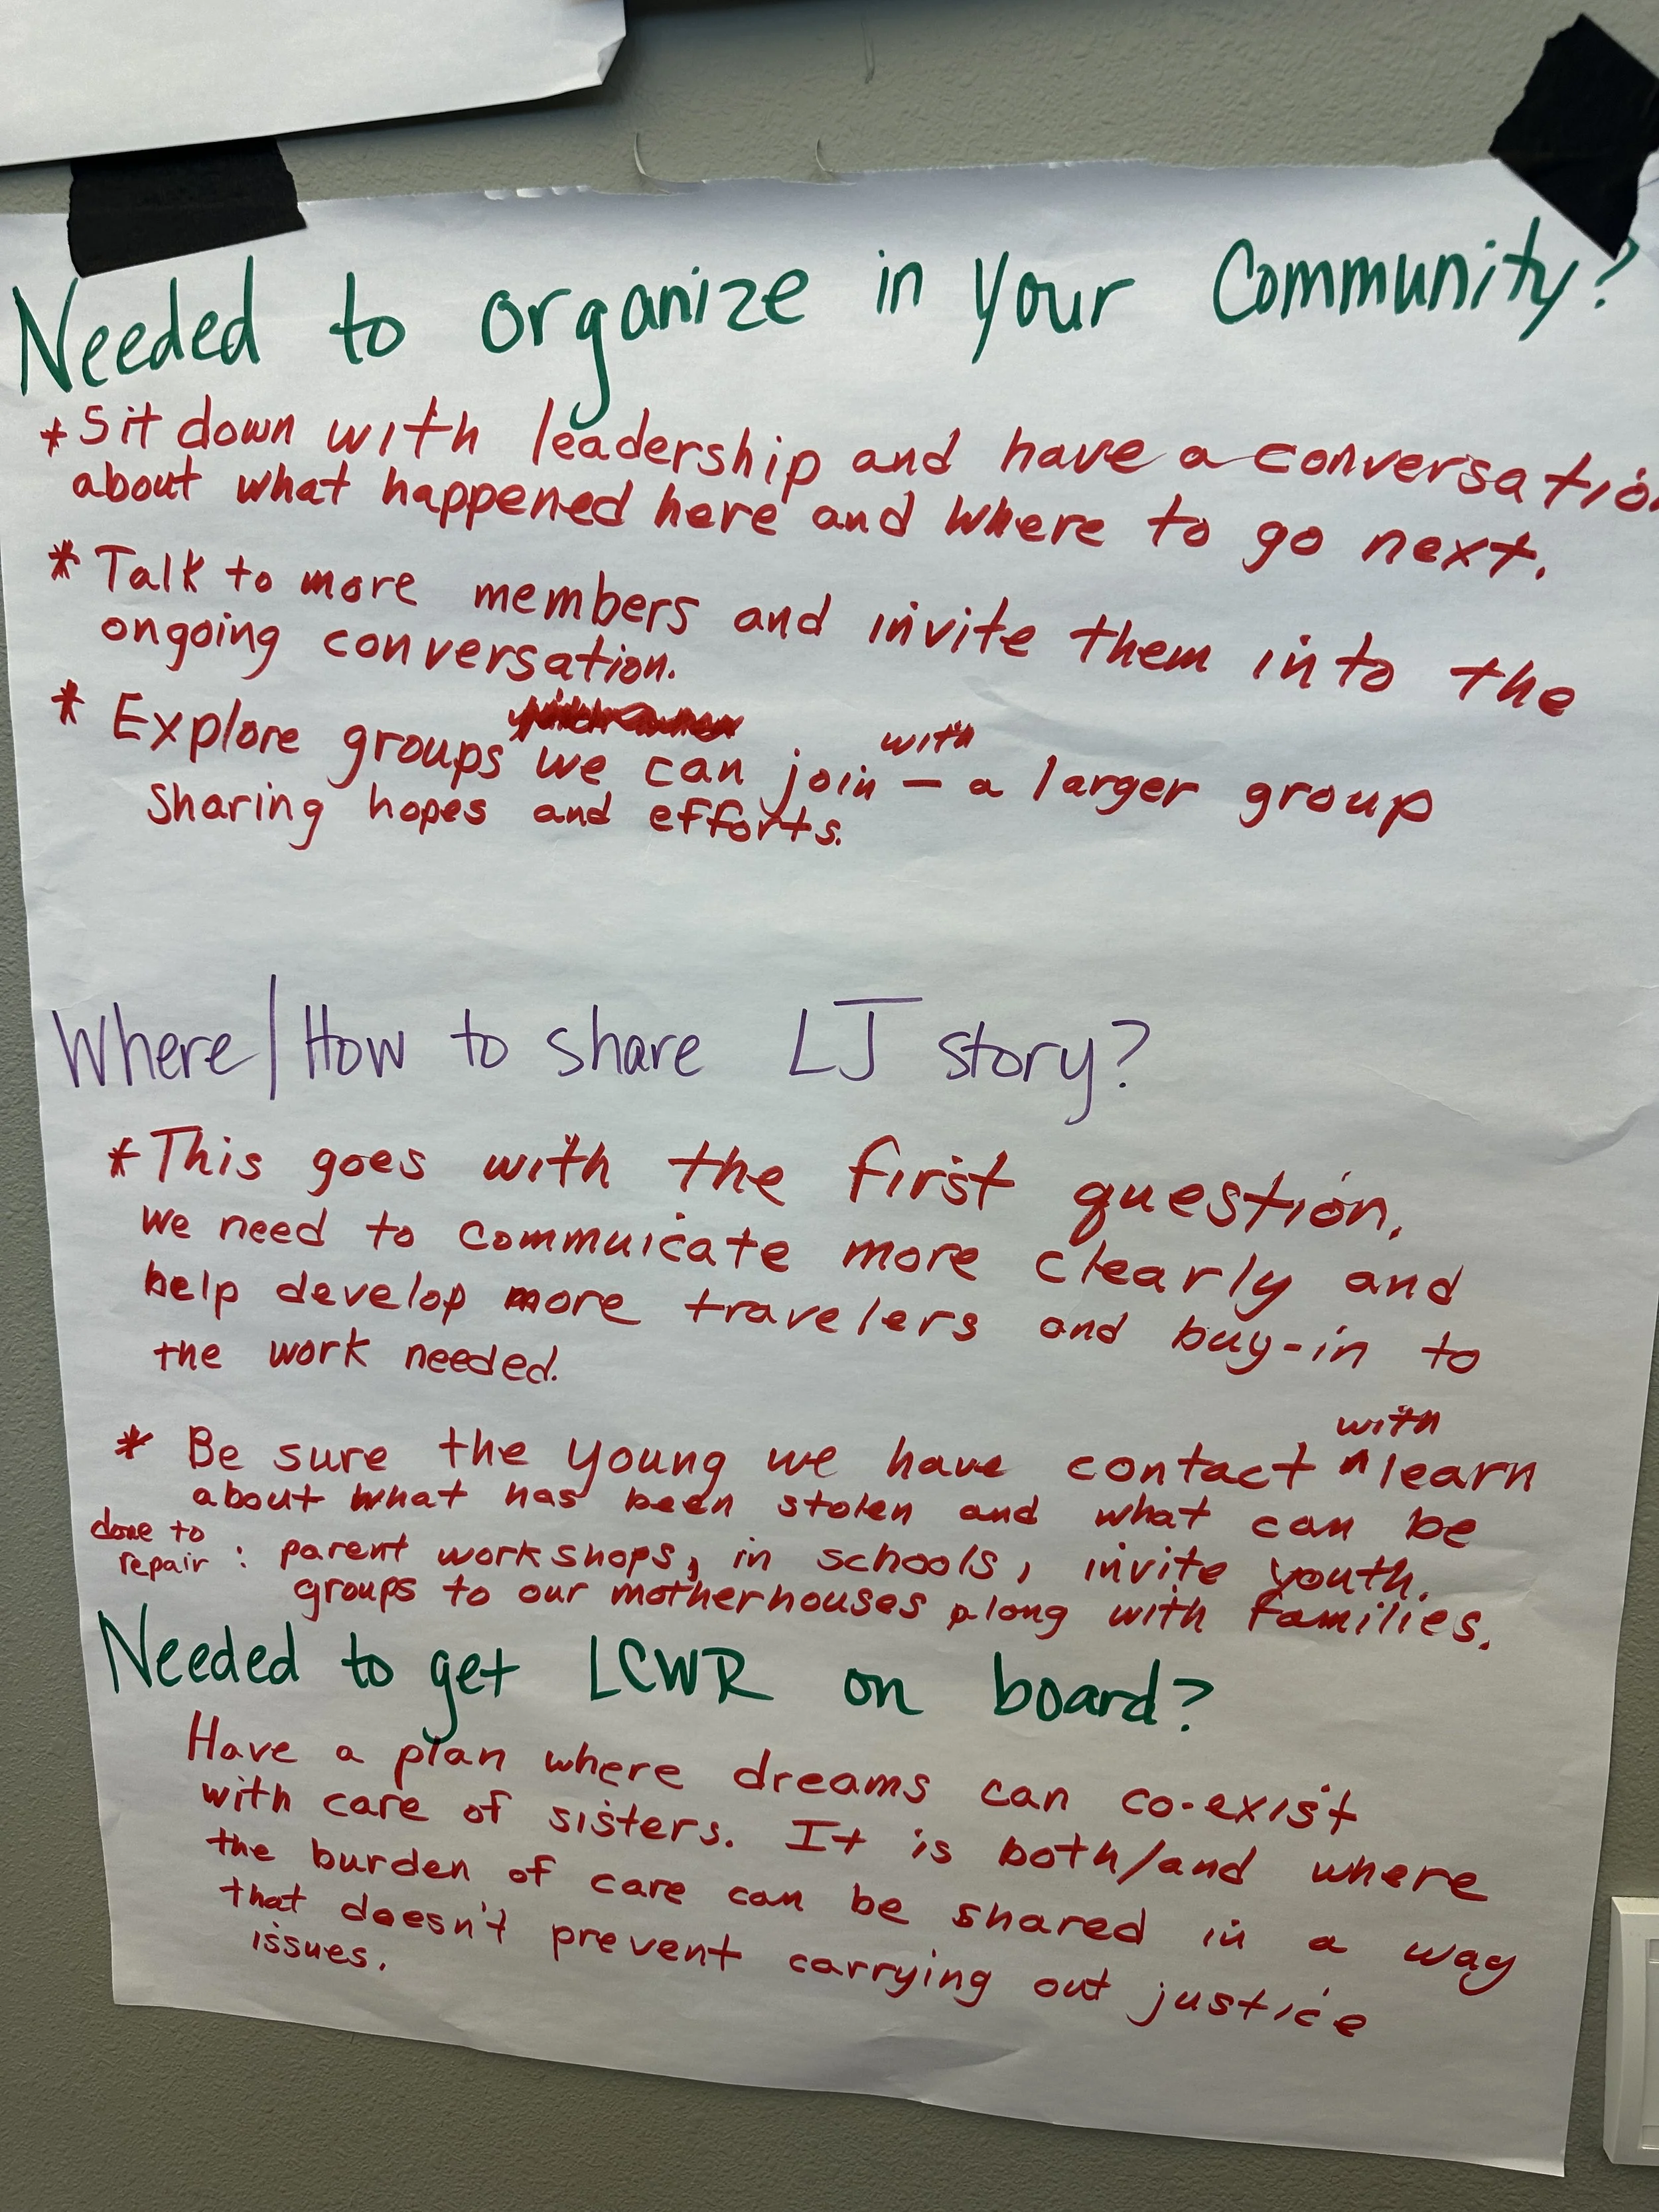 Needed to organize in your Community?
* Sit down with leadership and have a conversation
about what happened here and where to go next.
* Talk to more members and invite them into the
ongoing conversation.
* Explore groups we can join with — a larger group
sharing hopes and efforts.
Where/How to share LJ story?
* This goes with the first question.
We need to commuicate more clearly and
help develop more travelers and buy-in to
the work needed.
* Be sure the young we have contact with learn
about what has been stolen and what can be
done to
repair : parent workshops, in schools, invite youth.
groups to our motherhouses along with families.
Needed to get LCWR on board?
Have a plan where dreams can co-exist
with care of sisters. It is both/and where
the burden of care can be shared in a way
that doesn't prevent carrying out justice
issues.